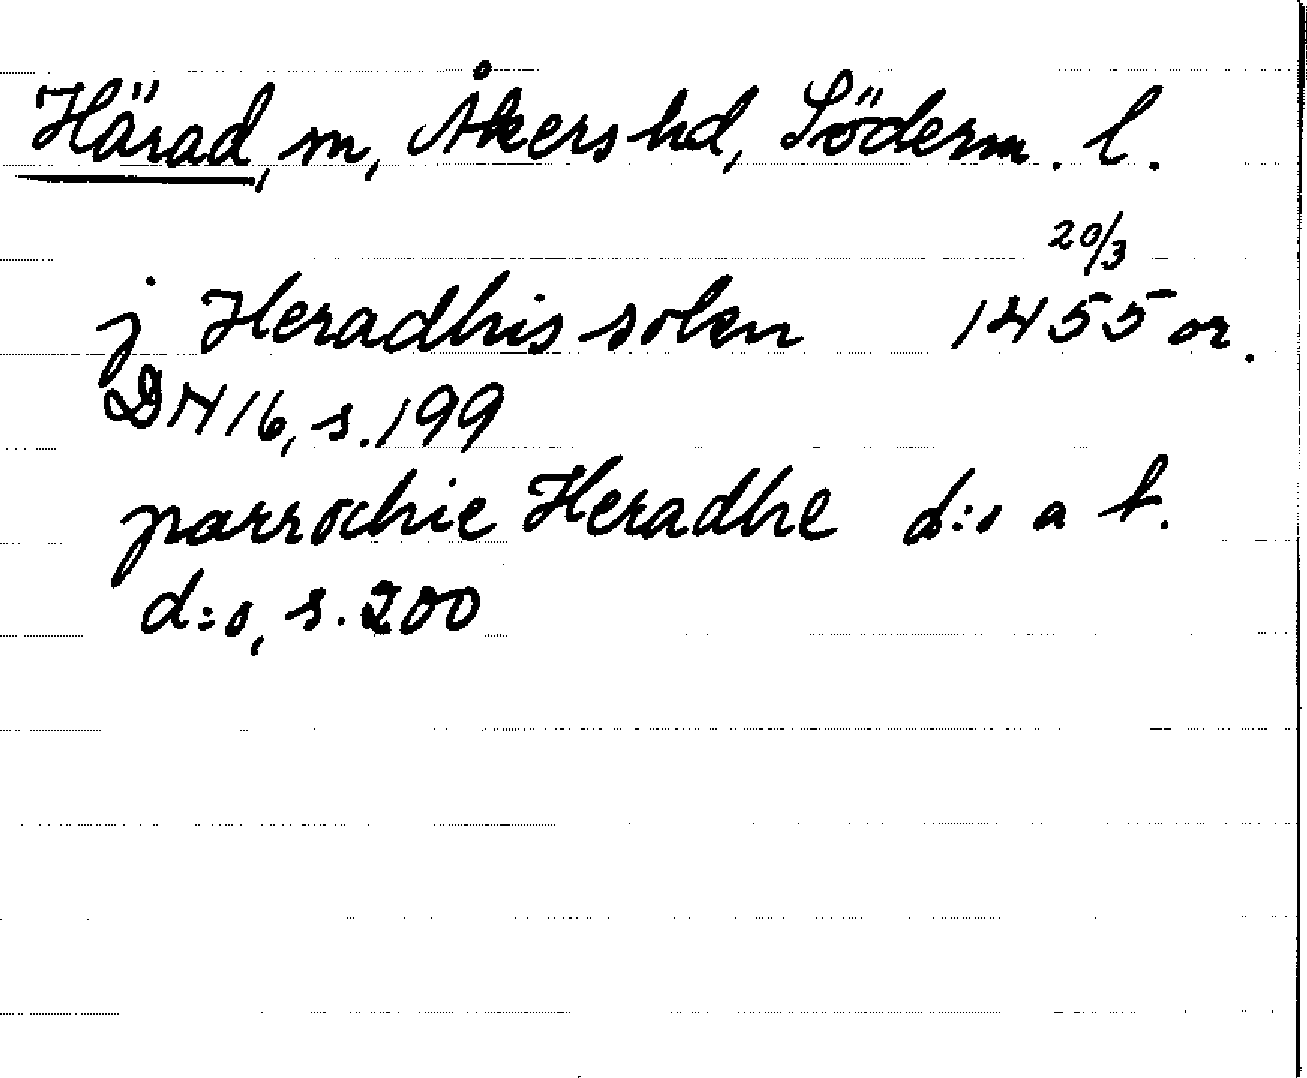 Härad, sn, Åkers hd, Söderm. l.
20/3
j Heradhis solen 1455 or.
DN 16, s. 199
parrochie Heradhe d:o a t.
d:o, s. 200